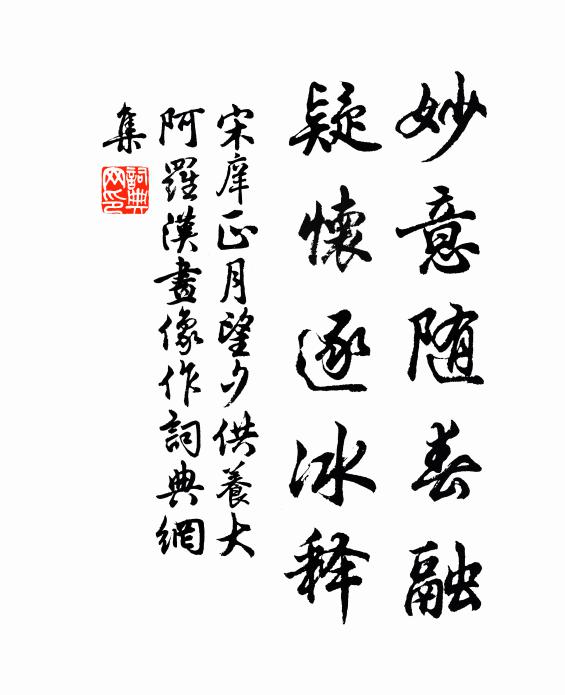 妙意随春融
疑懷逐冰释
宋庠正月望夕供養大
阿羅漢畫像作詞典網
集
詞典
网印